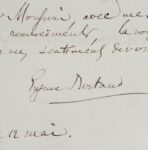 Monsieur avec mes
remerciements la
sentiments dévoués
Eugène Rostand
12 mai.